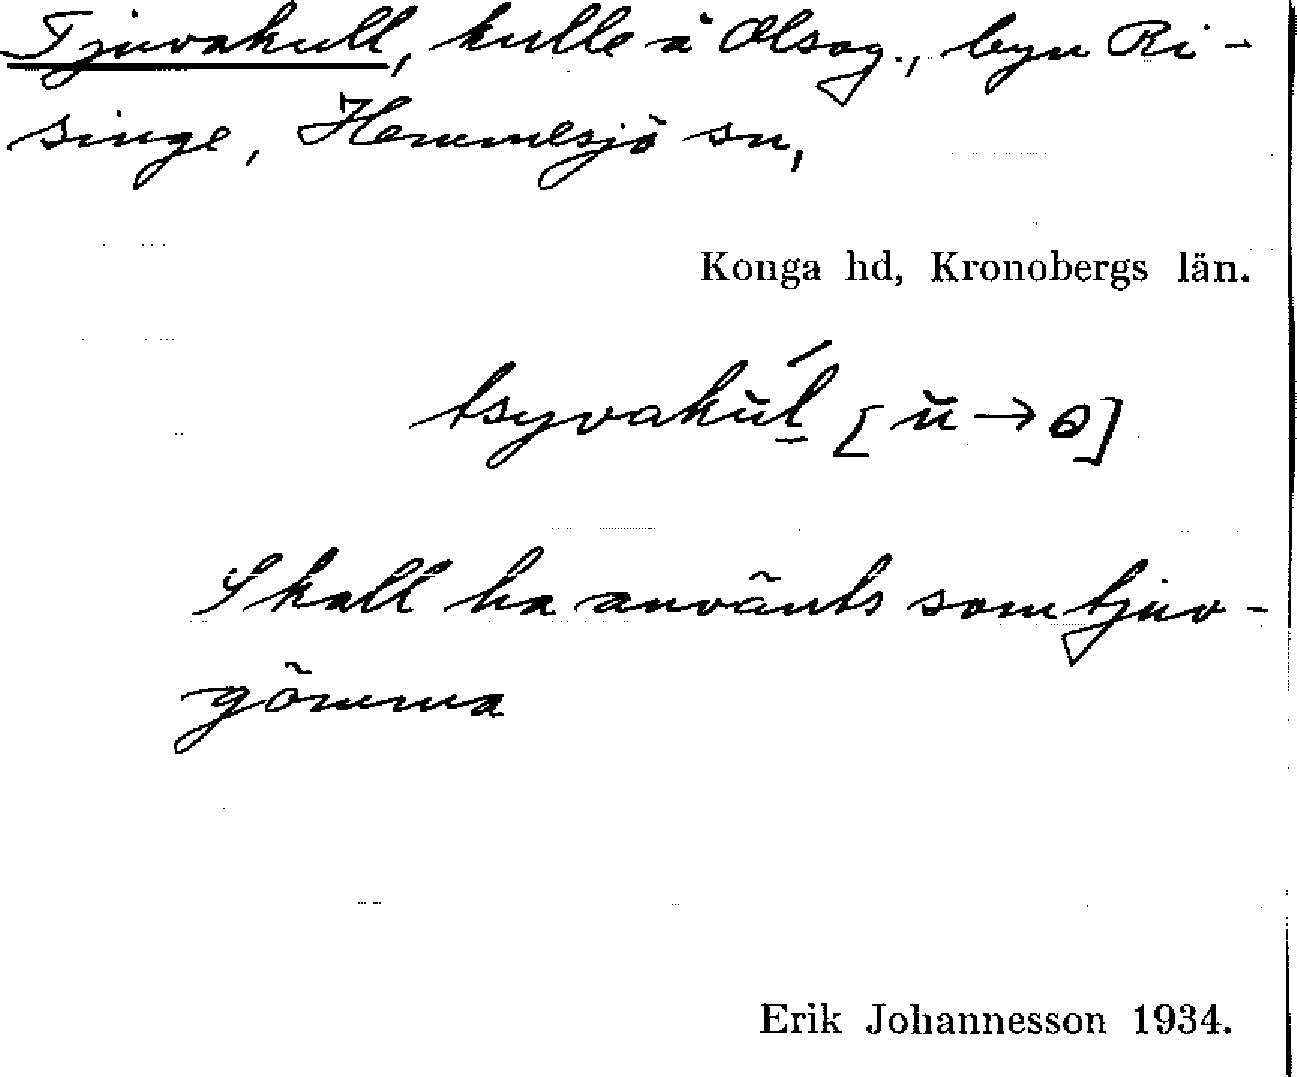 Tjuvakull, kulle å Olsag., byn Ri-
singe, Hemmesjö sn,
Konga hd, Kronobergs län.
tsyvakŭĺ̠ [ŭ→o]
Skall ha använts som tjuv-
gömma
Erik Johannesson 1934.